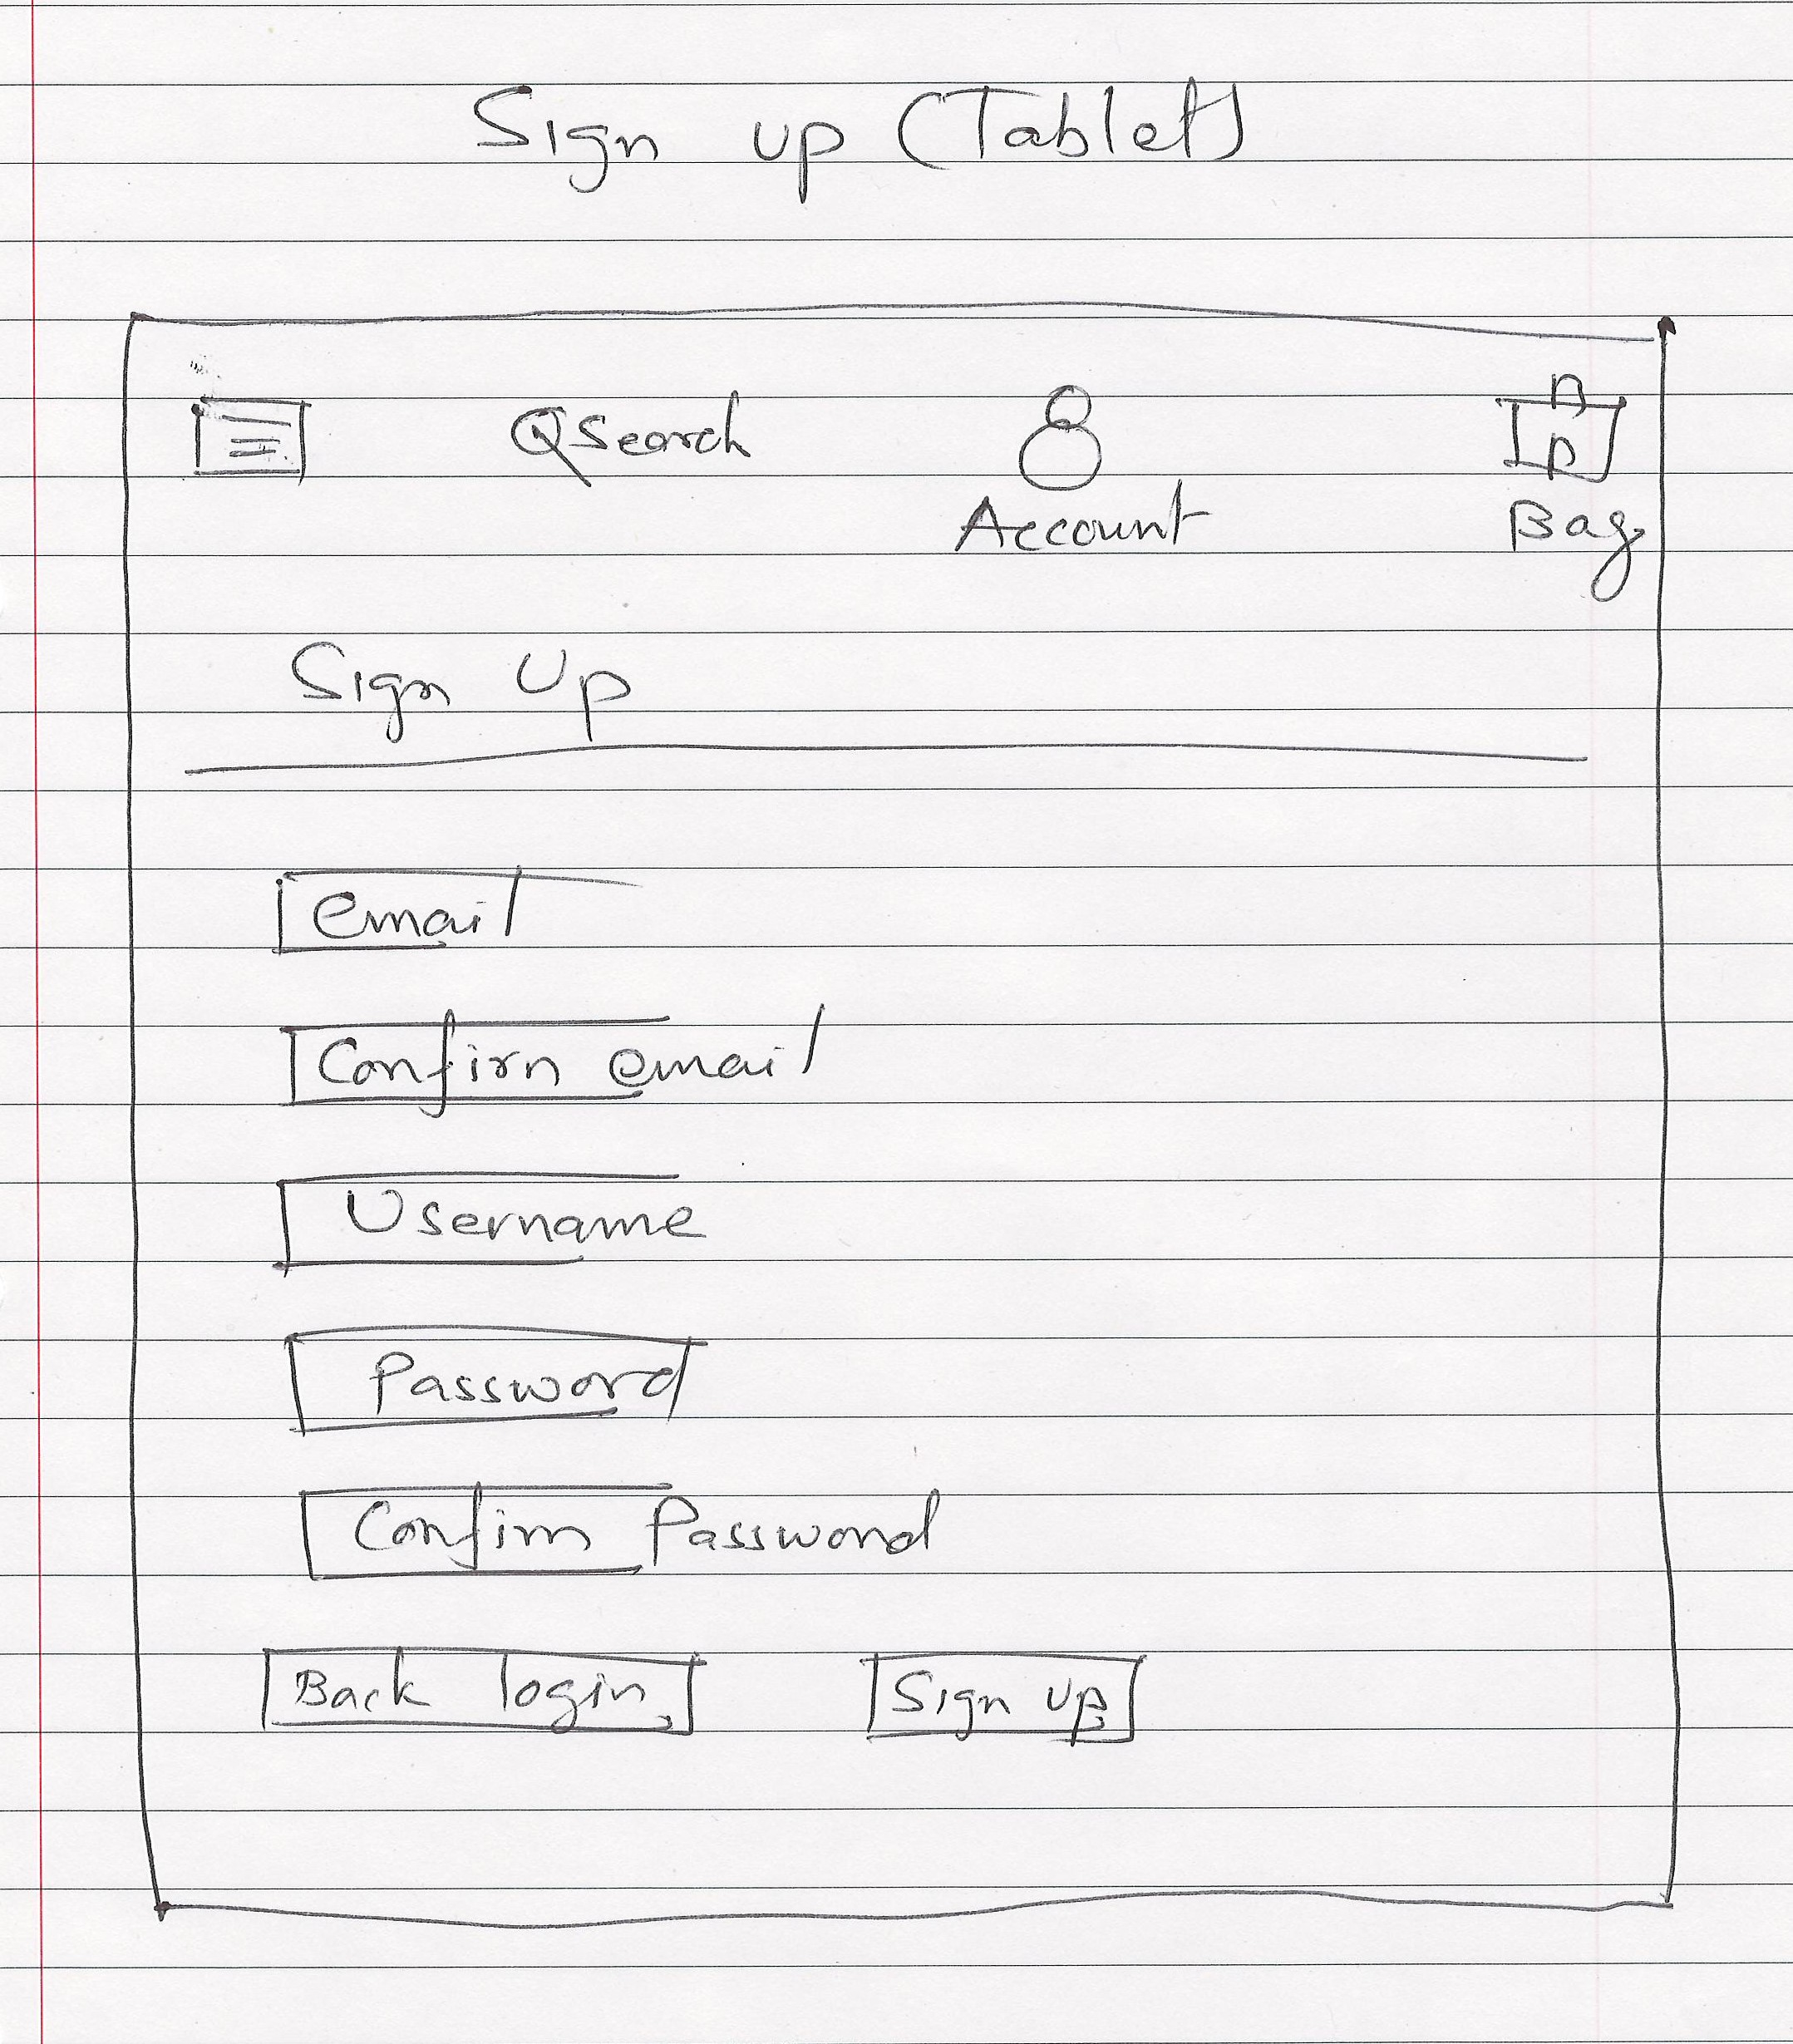 Sign up (Tablet)
Search
Account
Bag
Sign Up
email
Confirn email
Username
Password
Confirm Password
Back login
Sign up